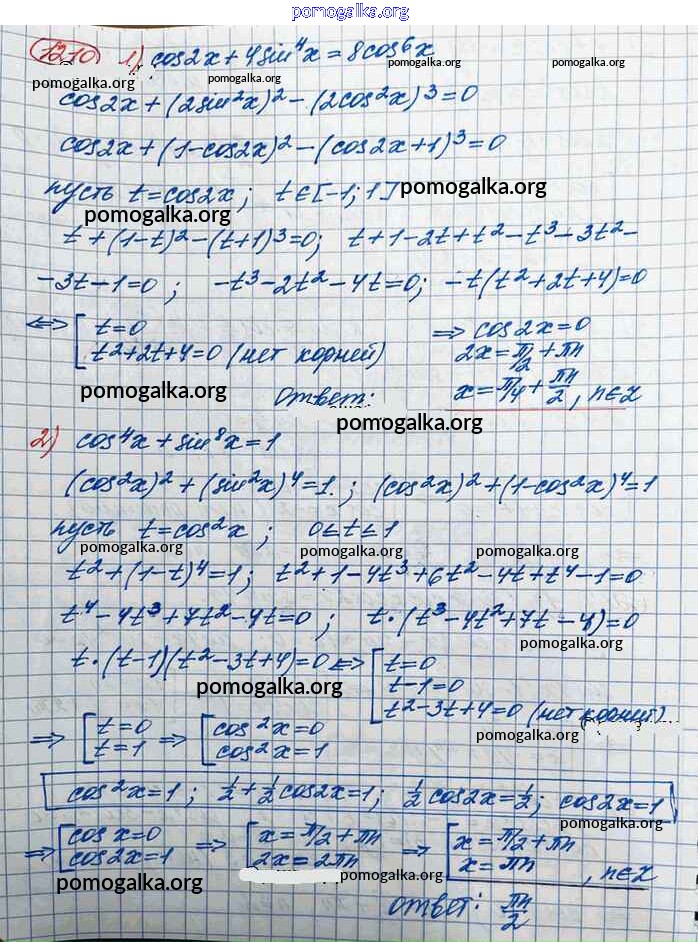 pomogalka.org
1210 1) cos2x + 4sin⁴x = 8cos⁶x
pomogalka.org pomogalka.org pomogalka.org
cos2x + (2sin²x)² - (2cos²x)³ = 0
cos2x + (1-cos2x)² - (cos2x+1)³ = 0
пусть t = cos2x; t ∈ [-1; 1] pomogalka.org
pomogalka.org
t + (1-t)² - (t+1)³ = 0; t + 1 - 2t + t² - t³ - 3t² -
- 3t - 1 = 0; -t³ - 2t² - 4t = 0; -t(t² + 2t + 4) = 0
⇔ [ t = 0 ⇒ cos2x = 0
t² + 2t + 4 = 0 (нет корней) 2x = π/2 + πn
pomogalka.org Ответ: x = π/4 + πn/2, n∈Z
pomogalka.org
2) cos⁴x + sin⁸x = 1
(cos²x)² + (sin²x)⁴ = 1.; (cos²x)² + (1-cos²x)⁴ = 1
пусть t = cos²x; 0 ≤ t ≤ 1
pomogalka.org pomogalka.org
t² + (1-t)⁴ = 1; t² + 1 - 4t³ + 6t² - 4t + t⁴ - 1 = 0
t⁴ - 4t³ + 7t² - 4t = 0; t·(t³ - 4t² + 7t - 4) = 0
pomogalka.org
t·(t-1)(t² - 3t + 4) = 0 ⇔ [ t = 0
pomogalka.org t - 1 = 0
t² - 3t + 4 = 0 (нет корней)
pomogalka.org
⇒ [ t = 0 ⇒ [ cos²x = 0
t = 1 cos²x = 1
cos²x = 1; 1/2 + 1/2 cos2x = 1; 1/2 cos2x = 1/2; cos2x = 1
pomogalka.org
⇒ [ cosx = 0 ⇒ [ x = π/2 + πn ⇒ [ x = π/2 + πn
cos2x = 1 2x = 2πn x = πn, n∈Z
pomogalka.org pomogalka.org
Ответ: πn/2
pomogalka.org